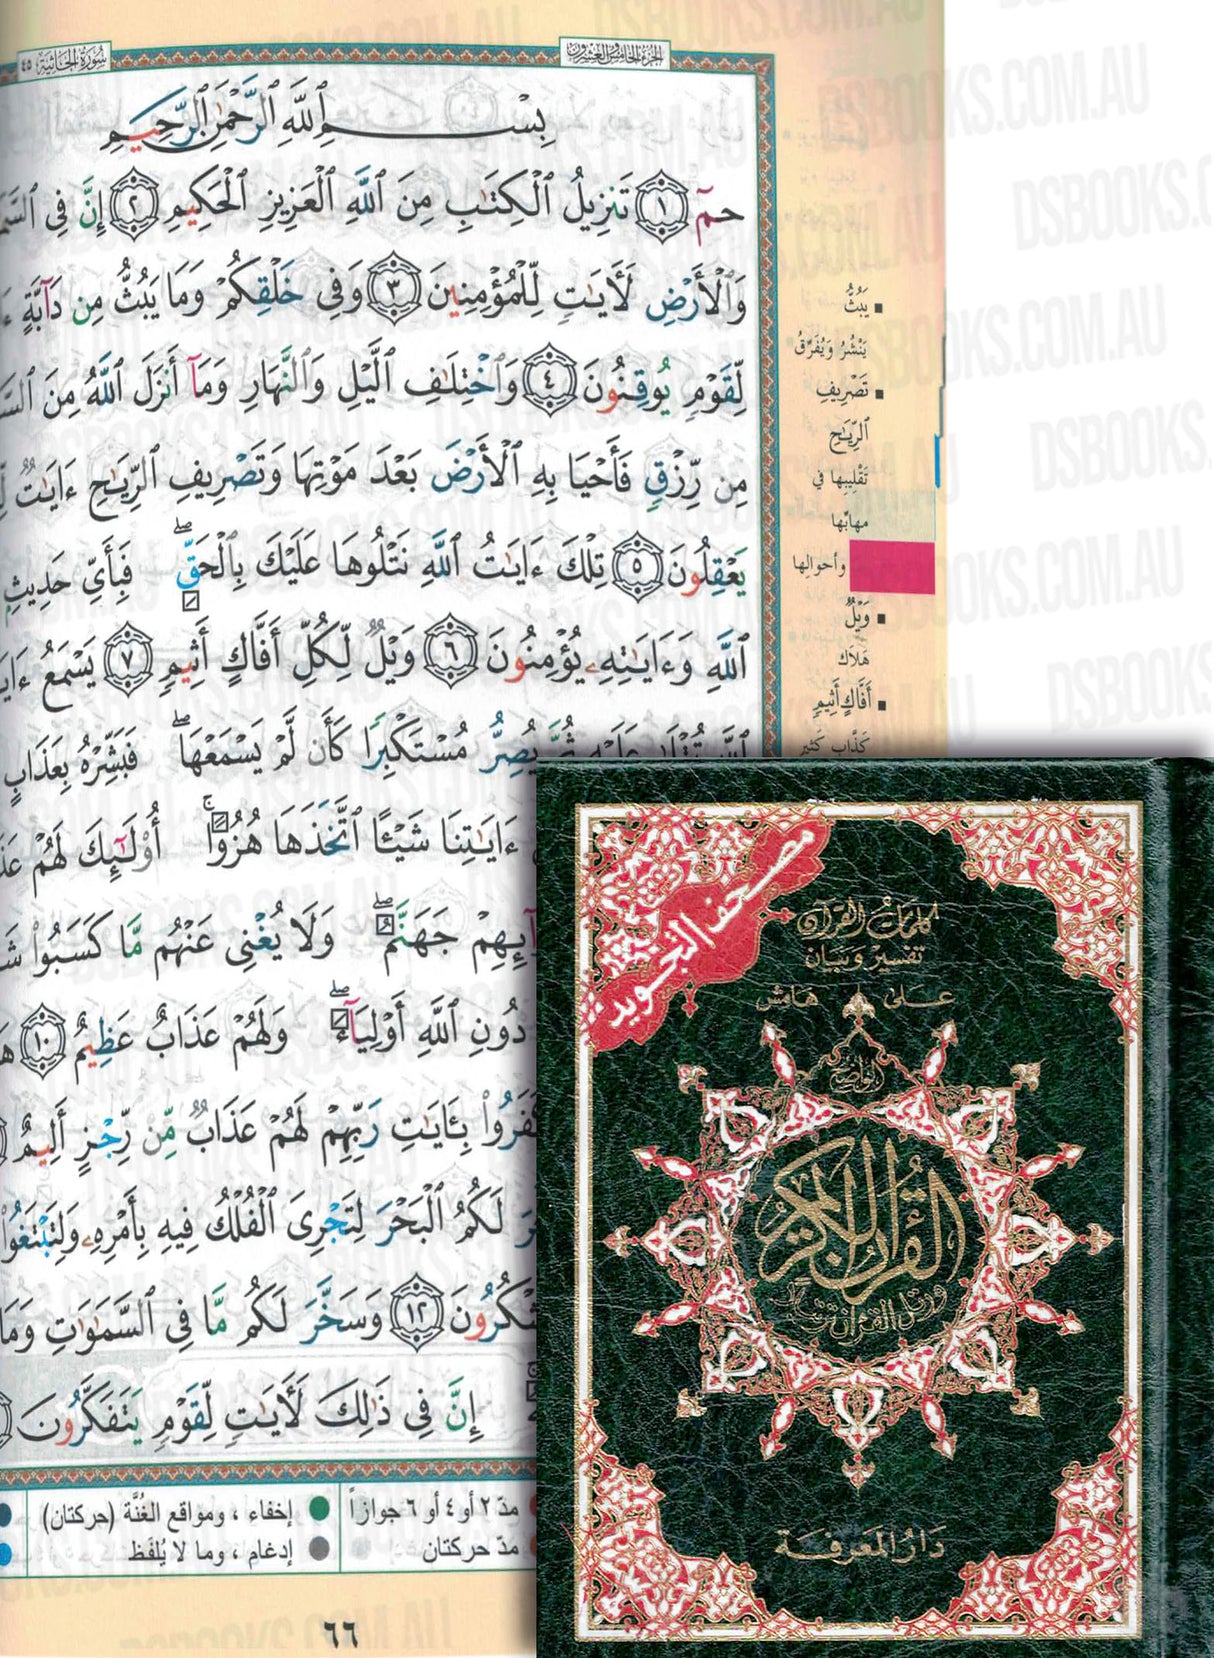 الجزء الخامس والعشرون
سُورَةُ الجَاثِيَة ٤٥
بِسْمِ ٱللَّهِ ٱلرَّحْمَٰنِ ٱلرَّحِيمِ
حمٓ ١ تَنزِيلُ ٱلْكِتَٰبِ مِنَ ٱللَّهِ ٱلْعَزِيزِ ٱلْحَكِيمِ ٢ إِنَّ فِى
وَٱلْأَرْضِ لَـَٔايَٰتٍ لِّلْمُؤْمِنِينَ ٣ وَفِى خَلْقِكُمْ وَمَا يَبُثُّ مِن دَآبَّةٍ
لِّقَوْمٍ يُوقِنُونَ ٤ وَٱخْتِلَٰفِ ٱلَّيْلِ وَٱلنَّهَارِ وَمَآ أَنزَلَ ٱللَّهُ مِنَ
مِن رِّزْقٍ فَأَحْيَا بِهِ ٱلْأَرْضَ بَعْدَ مَوْتِهَا وَتَصْرِيفِ ٱلرِّيَٰحِ ءَايَٰتٌ
يَعْقِلُونَ ٥ تِلْكَ ءَايَٰتُ ٱللَّهِ نَتْلُوهَا عَلَيْكَ بِٱلْحَقِّ ۖ فَبِأَىِّ حَدِيثٍ
ٱللَّهِ وَءَايَٰتِهِۦ يُؤْمِنُونَ ٦ وَيْلٌ لِّكُلِّ أَفَّاكٍ أَثِيمٍ ٧ يَسْمَعُ
ٱللَّهِ تُتْلَىٰ عَلَيْهِ ثُمَّ يُصِرُّ مُسْتَكْبِرًا كَأَن لَّمْ يَسْمَعْهَا ۖ فَبَشِّرْهُ بِعَذَابٍ
ءَايَٰتِنَا شَيْـًٔا ٱتَّخَذَهَا هُزُوًا ۚ أُو۟لَٰٓئِكَ لَهُمْ
جَهَنَّمُ ۖ وَلَا يُغْنِى عَنْهُم مَّا كَسَبُوا۟
دُونِ ٱللَّهِ أَوْلِيَآءَ ۖ وَلَهُمْ عَذَابٌ عَظِيمٌ ١٠
بِـَٔايَٰتِ رَبِّهِمْ لَهُمْ عَذَابٌ مِّن رِّجْزٍ أَلِيمٌ
لَكُمُ ٱلْبَحْرَ لِتَجْرِىَ ٱلْفُلْكُ فِيهِ بِأَمْرِهِۦ وَلِتَبْتَغُوا۟
١٢ وَسَخَّرَ لَكُم مَّا فِى ٱلسَّمَٰوَٰتِ وَمَا
إِنَّ فِى ذَٰلِكَ لَـَٔايَٰتٍ لِّقَوْمٍ يَتَفَكَّرُونَ
يَبُثُّ
يَنْشُرُ وَيُفَرِّقُ
تَصْرِيفِ
ٱلرِّيَاحِ
تَقْلِيبِها في
مهابِّها
وأحوالِها
وَيْلٌ
هَلَاك
أَفَّاكٍ أَثِيمٍ
كَذَّاب كَثِير
مدّ ٢ أو ٤ أو ٦ جوازاً
إخفاء ، ومواقع الغُنَّة (حركتان)
مدّ حركتان
إدغام ، وما لا يُلفَظ
٦٦
مصحف التجويد
كلمات القرآن
تفسير وبيان
على هامش
القرآن الكريم
ورتل القرآن ترتيلا
دَارُ المَعرِفَة
DSBOOKS.COM.AU